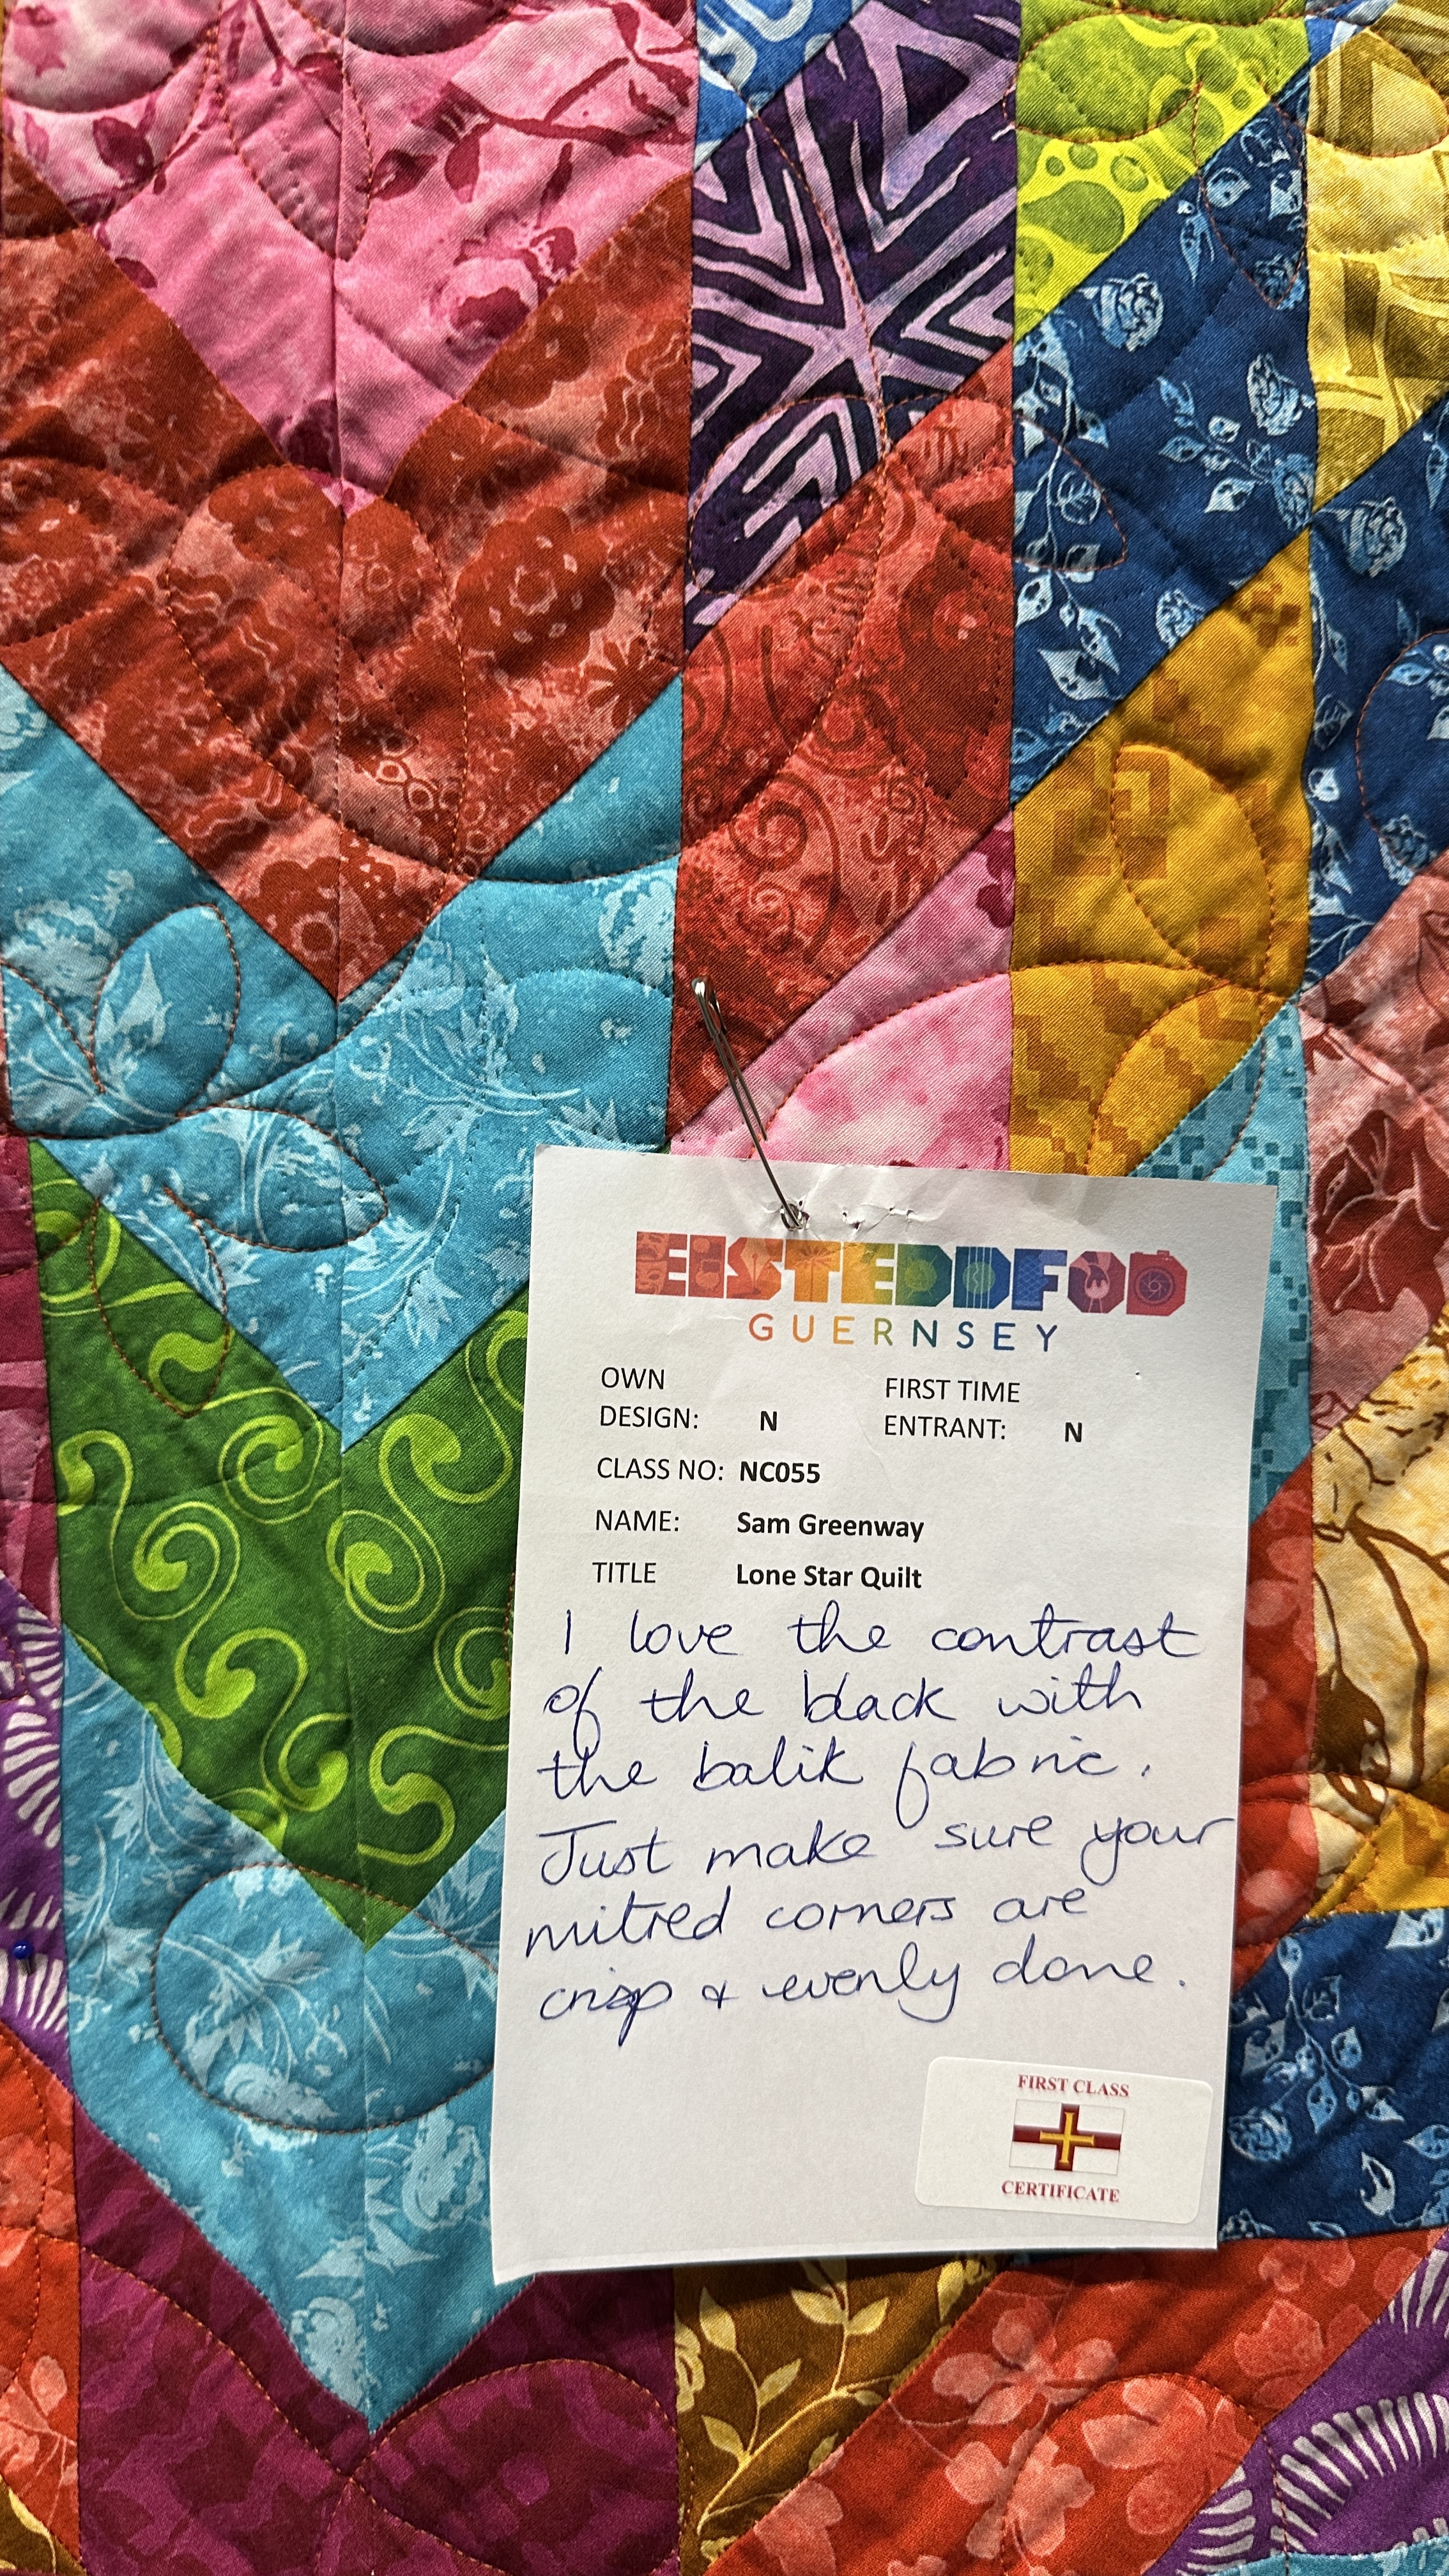 EISTEDDFOD
GUERNSEY
OWN DESIGN: N
FIRST TIME ENTRANT: N
CLASS NO: NC055
NAME: Sam Greenway
TITLE Lone Star Quilt
I love the contrast
of the black with
the batik fabric.
Just make sure your
mitred corners are
crisp & evenly done.
FIRST CLASS
CERTIFICATE